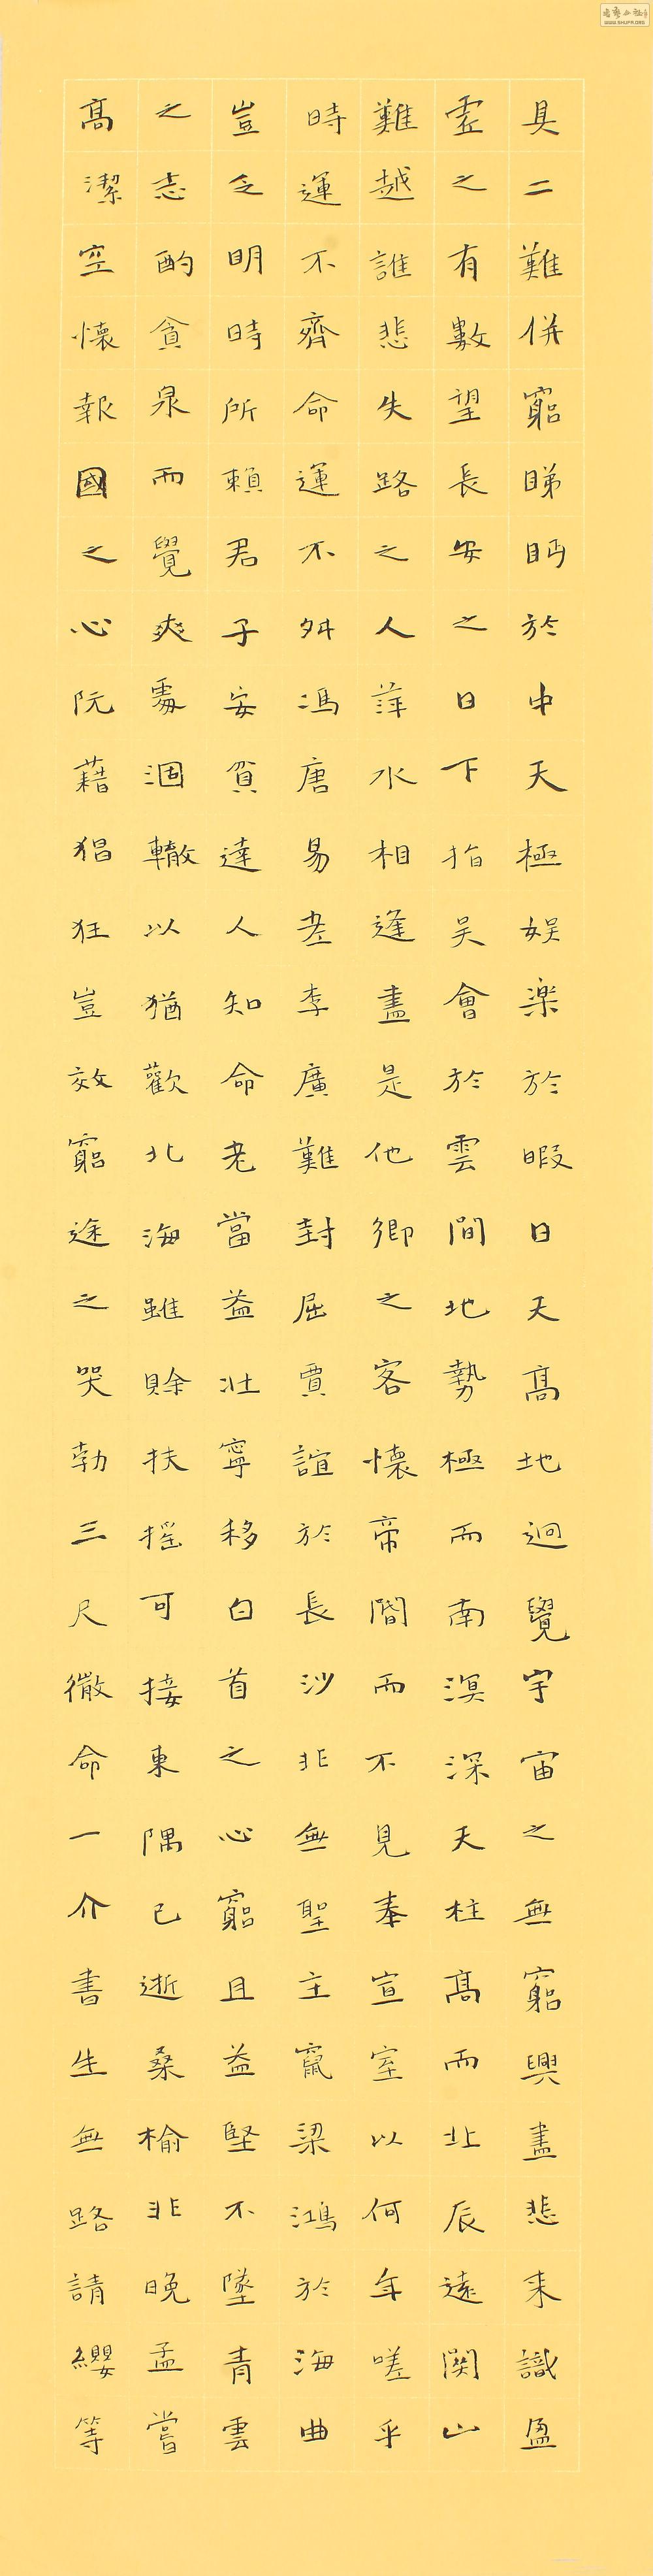 具二難併窮睇眄於中天極娛楽於暇日天髙地迥覺宇宙之無窮興盡悲来識盈
虛之有數望長安之日下指吴會於雲間地勢極而南溟深天柱髙而北辰遠関山
難越誰悲失路之人萍水相逢盡是他鄉之客懷帝閽而不見奉宣室以何年嗟乎
時運不齊命運不舛馮唐易老李廣難封屈賈誼於長沙非無聖主竄梁鴻於海曲
豈乏明時所賴君子安貧達人知命老當益壯寧移白首之心窮且益堅不墜青雲
之志酌貪泉而覺爽處涸轍以猶歡北海雖賒扶搖可接東隅已逝桑榆非晚孟嘗
髙潔空懷報國之心阮藉猖狂豈效窮途之哭勃三尺微命一介書生無路請纓等
WWW.SHUFA.ORG